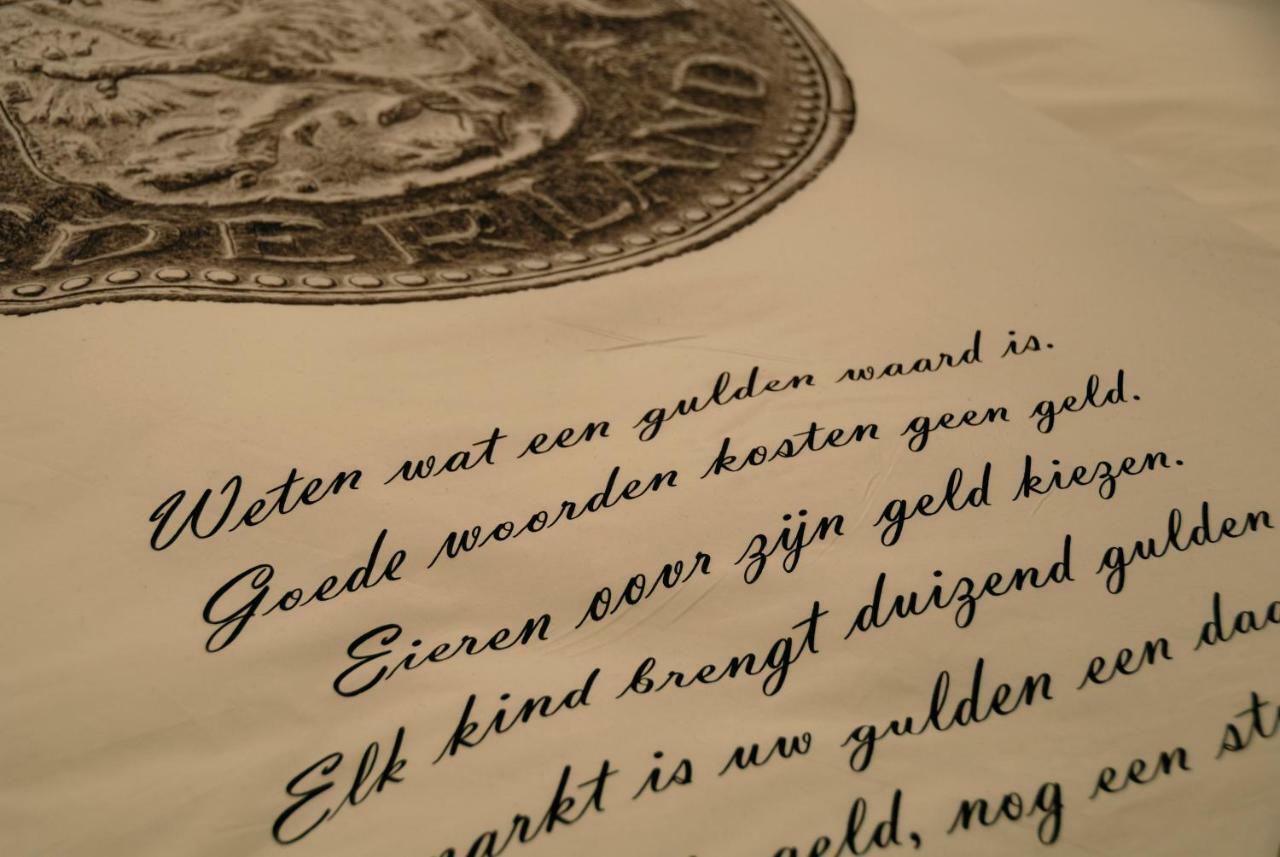 DERLAND
Weten wat een gulden waard is.
Goede woorden kosten geen geld.
Eieren oovr zijn geld kiezen.
Elk kind brengt duizend gulden
markt is uw gulden een
geld, nog een